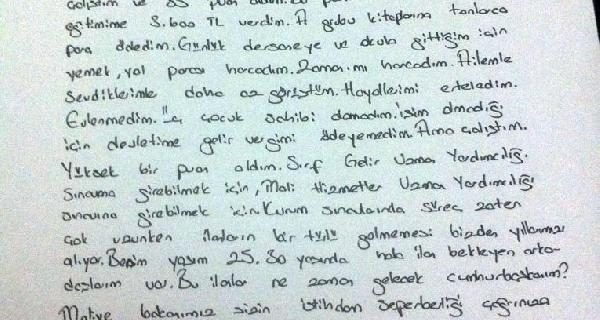 çalıştım ve 85 puan aldım.
eğitimime 3.600 TL verdim. A grubu kitaplarına tonlarca
para ödedim. Günlük dersaneye ve okula gittiğim için
yemek, yol parası harcadım. Zamanımı harcadım. Ailemle
Sevdiklerimle daha az görüştüm. Hayallerimi erteledim.
Evlenmedim. "Üç çocuk sahibi olamadım. İşim olmadığı
için devletime gelir vergimi ödeyemedim. Ama çalıştım.
Yüksek bir puan aldım. Sırf Gelir Uzman Yardımcılığı
Sınavına girebilmek için, Mali Hizmetler Uzman Yardımcılığı
sınavına girebilmek için. Kurum sınavlarında süreç zaten
çok uzunken ilanların bir türlü gelmemesi bizden yıllarımızı
alıyor. Benim yaşım 25. 30 yaşında hala ilan bekleyen arka-
daşlarım var. Bu ilanlar ne zaman gelecek cumhurbaşkanım?
Maliye bakanımız sizin istihdam seferberliği çağrınıza